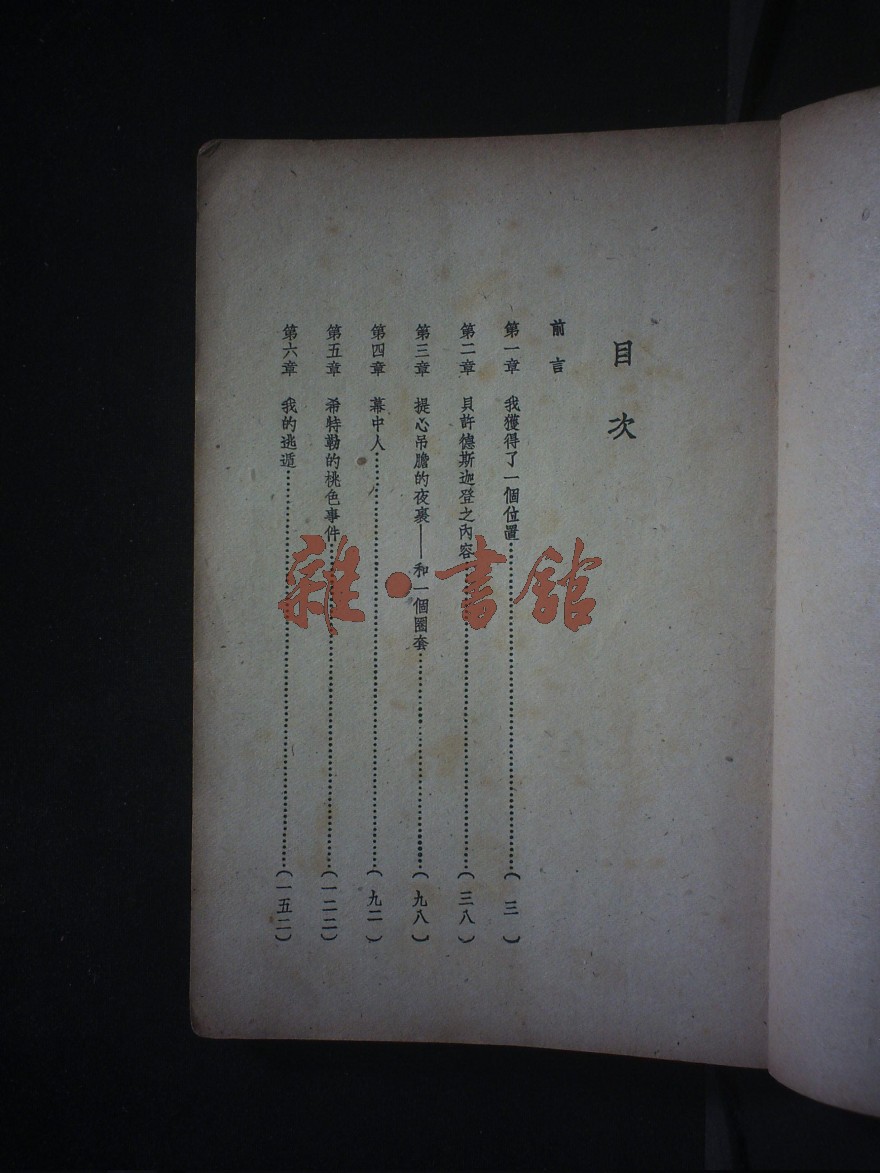 目次
前言
第一章 我獲得了一個位置……(三)
第二章 貝許德斯迦登之內容……(三八)
第三章 提心吊膽的夜裏——和一個圈套……(九八)
第四章 幕中人……(九二)
第五章 希特勒的桃色事件……(一二二)
第六章 我的逃遁……(一五二)
雜·書館